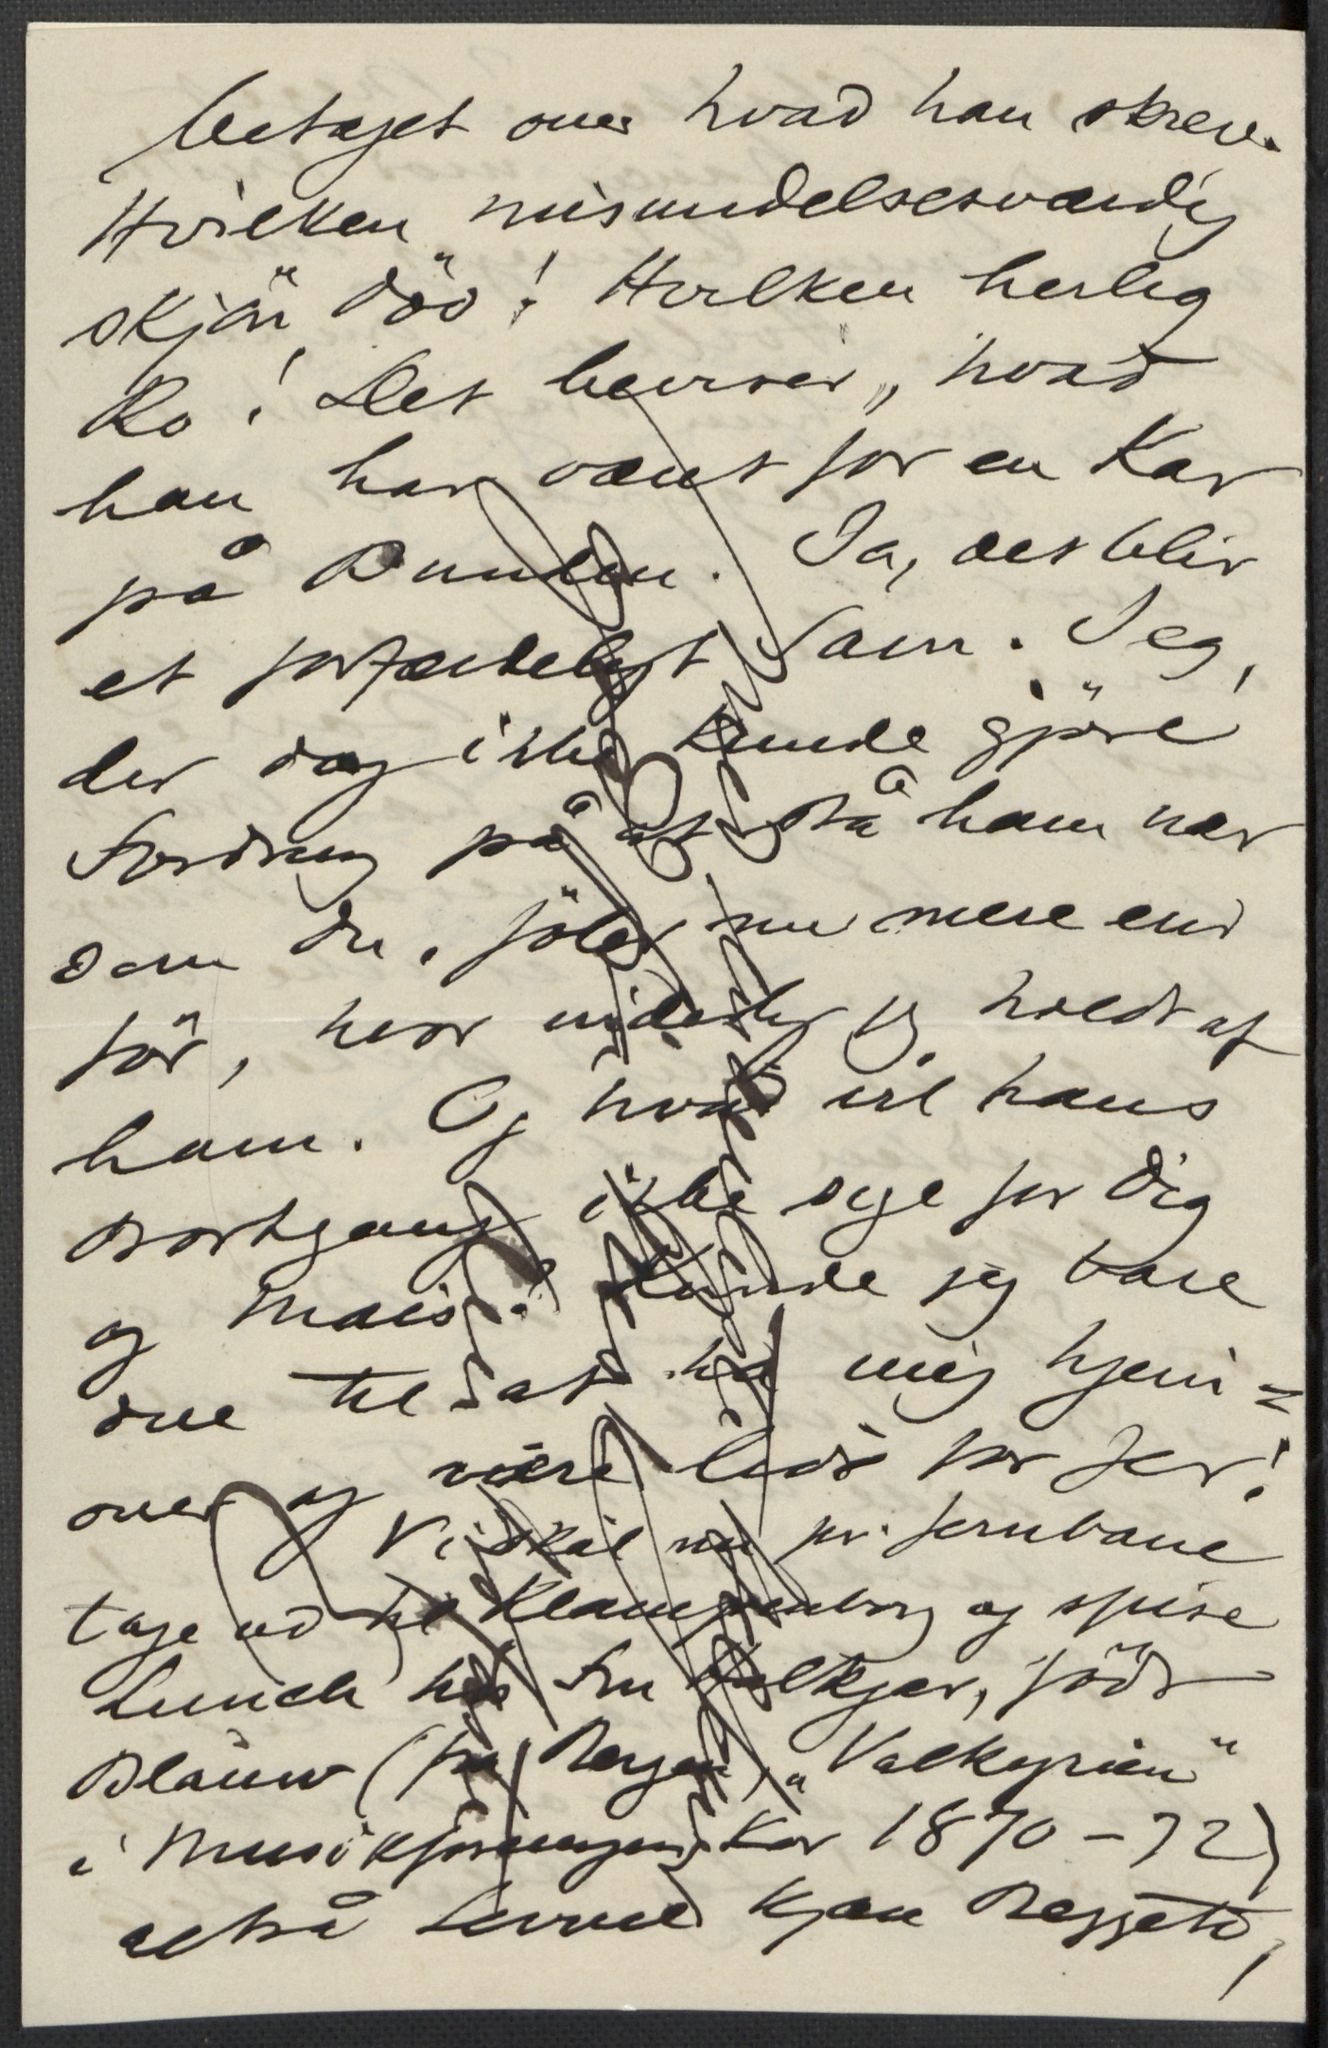 betaget over hvad han skrev.
Hvilken misundelsesværdig
skjön Död! Hvilken herlig
Ro! Det beviser, hvad
han har været for en Kar
på Bunden. Ja, det blir
et forfærdeligt Savn. Jeg,
der dog ikke kunde gjöre
Fordring på at stå ham nær
som du, föler nu mere end
för, hvor inderlig jeg holdt af
ham. Og hvad vil hans
Bortgang ikke sige for Dig
og Mais? Kunde jeg bare
due til at ha mig hjem=
over og være lidt for Jer!
Vi skal nu pr. Jernbane
tage ud til Klampenborg og spise
Lunch hos Fru Falkjær, födt
Blauw (fra Bergen, "Valkyrien"
i Musikforeningens Kor 1870–72)
altså kjæn